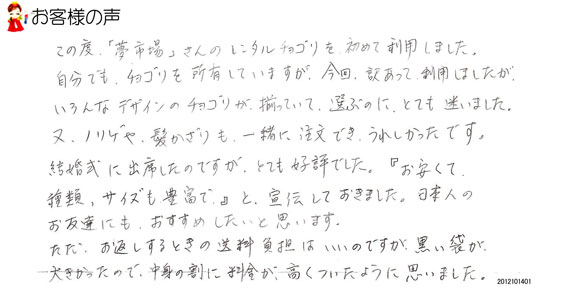 お客様の声
この度、「夢市場」さんのレンタルチョゴリを、初めて利用しました。
自分でも、チョゴリを所有していますが、今回、訳あって利用しましたが、
いろんなデザインのチョゴリが、揃っていて、選ぶのに、とても迷いました。
又、ノリゲや、髪かざりも、一緒に注文でき、うれしかったです。
結婚式に出席したのですが、とても好評でした。『お安くて、
種類、サイズも豊富で。』と、宣伝しておきました。日本人の
お友達にも、おすすめしたいと思います。
ただ、お返しするときの送料負担はいいのですが、黒い袋が、
大きかったので、中身の割に料金が、高くついたように思いました。
2012101401